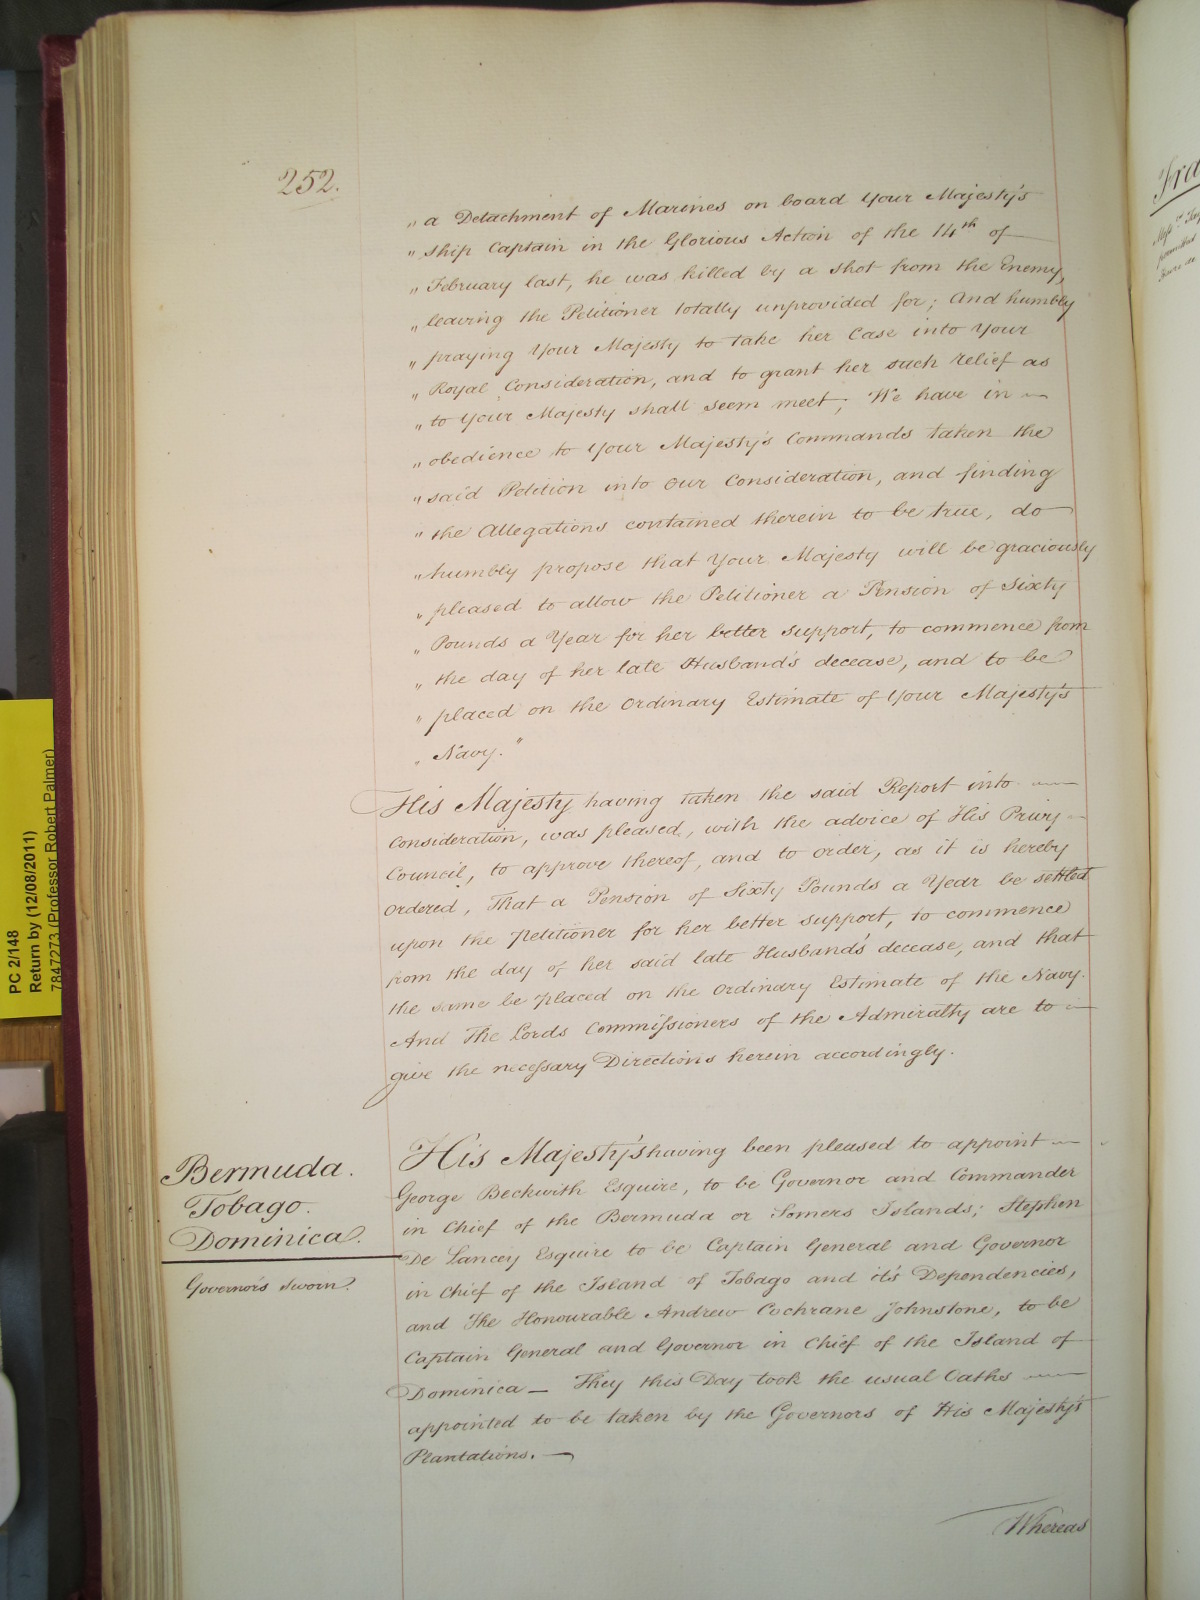 252.
„ a Detachment of Marines on board Your Majesty's
„ ship Captain in the Glorious Action of the 14th of
„ February last, he was killed by a shot from the Enemy,
„ leaving the Petitioner totally unprovided for; And humbly
„ praying Your Majesty to take her Case into Your
„ Royal Consideration, and to grant her such relief as
„ to Your Majesty shall seem meet; We have in
„ obedience to Your Majesty's Commands taken the
„ said Petition into Our Consideration, and finding
„ the Allegations contained therein to be true, do
„ humbly propose that Your Majesty will be graciously
„ pleased to allow the Petitioner a Pension of Sixty
„ Pounds a Year for her better support, to commence from
„ the day of her late Husband's decease, and to be
„ placed on the Ordinary Estimate of Your Majesty's
„ Navy."
His Majesty having taken the said Report into
Consideration, was pleased, with the advice of His Privy
Council, to approve thereof, and to order, as it is hereby
Ordered, That a Pension of Sixty Pounds a Year be settled
upon the Petitioner for her better support, to commence
from the day of her said late Husband's decease, and that
the same be placed on the Ordinary Estimate of the Navy.
And The Lords Commissioners of the Admiralty are to
give the necessary Directions herein accordingly.
Bermuda.
Tobago.
Dominica.
Governors Sworn.
His Majesty's having been pleased to appoint
George Beckwith Esquire, to be Governor and Commander
in Chief of the Bermuda or Somers Islands; Stephen
De Lancey Esquire to be Captain General and Governor
in Chief of the Island of Tobago and it's Dependencies,
and The Honourable Andrew Cochrane Johnstone, to be
Captain General and Governor in Chief of the Island of
Dominica — They this Day took the usual Oaths
appointed to be taken by the Governors of His Majesty's
Plantations. —
Whereas
PC 2/148
Return by (12/08/2011)
7847273 (Professor Robert Palmer)